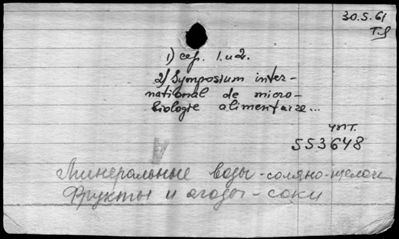 30.5.61
T.g
1) сер. 1.и2.
2) Symposium inter-
national de micro-
biologie alimentaire...
чит.
553648
Минеральные воды-соляно-щелочн
Фрукты и ягоды-соки